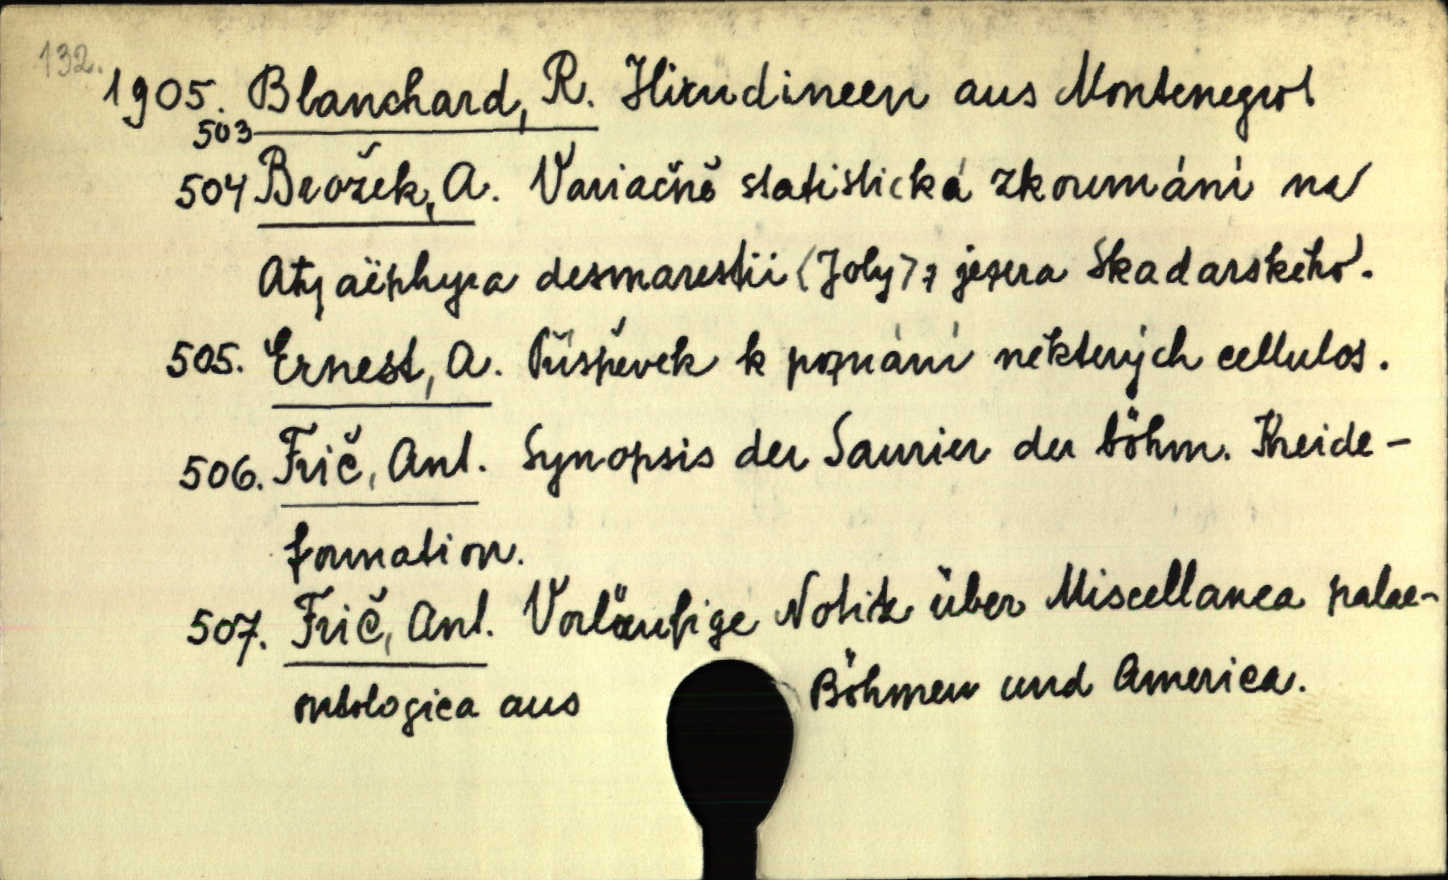 132.
1905. Blanchard, R. Hirudineen aus Montenegro
503
504 Brožek, A. Variačně statistická zkoumání na
Atyaëphyra desmarestii (Joly) z jezera Skadarského.
505. Ernest, A. Příspěvek k poznání některých cellulos.
506. Frič, Ant. Synopsis der Saurier der böhm. Kreide-
formation.
507. Frič, Ant. Vorläufige Notitz über Miscellanea palae-
ontologica aus Böhmen und America.